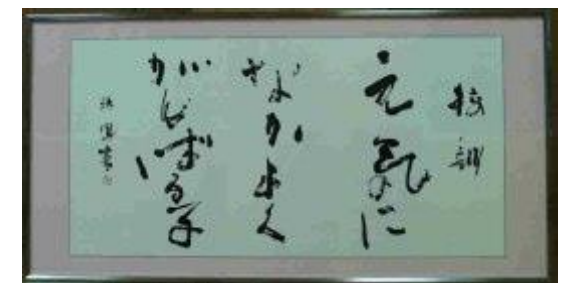 校訓
元気に
なかよく
がんばる子